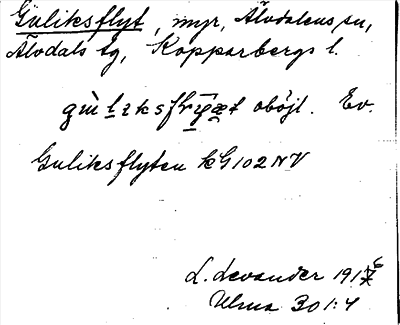 Guliksflyt, myr, Älvdalens sn,
Älvdals tg, Kopparbergs l.
oböjl. Ev.
Guliksflyten kG102NV
L. Levander 191
Ulma 301:4